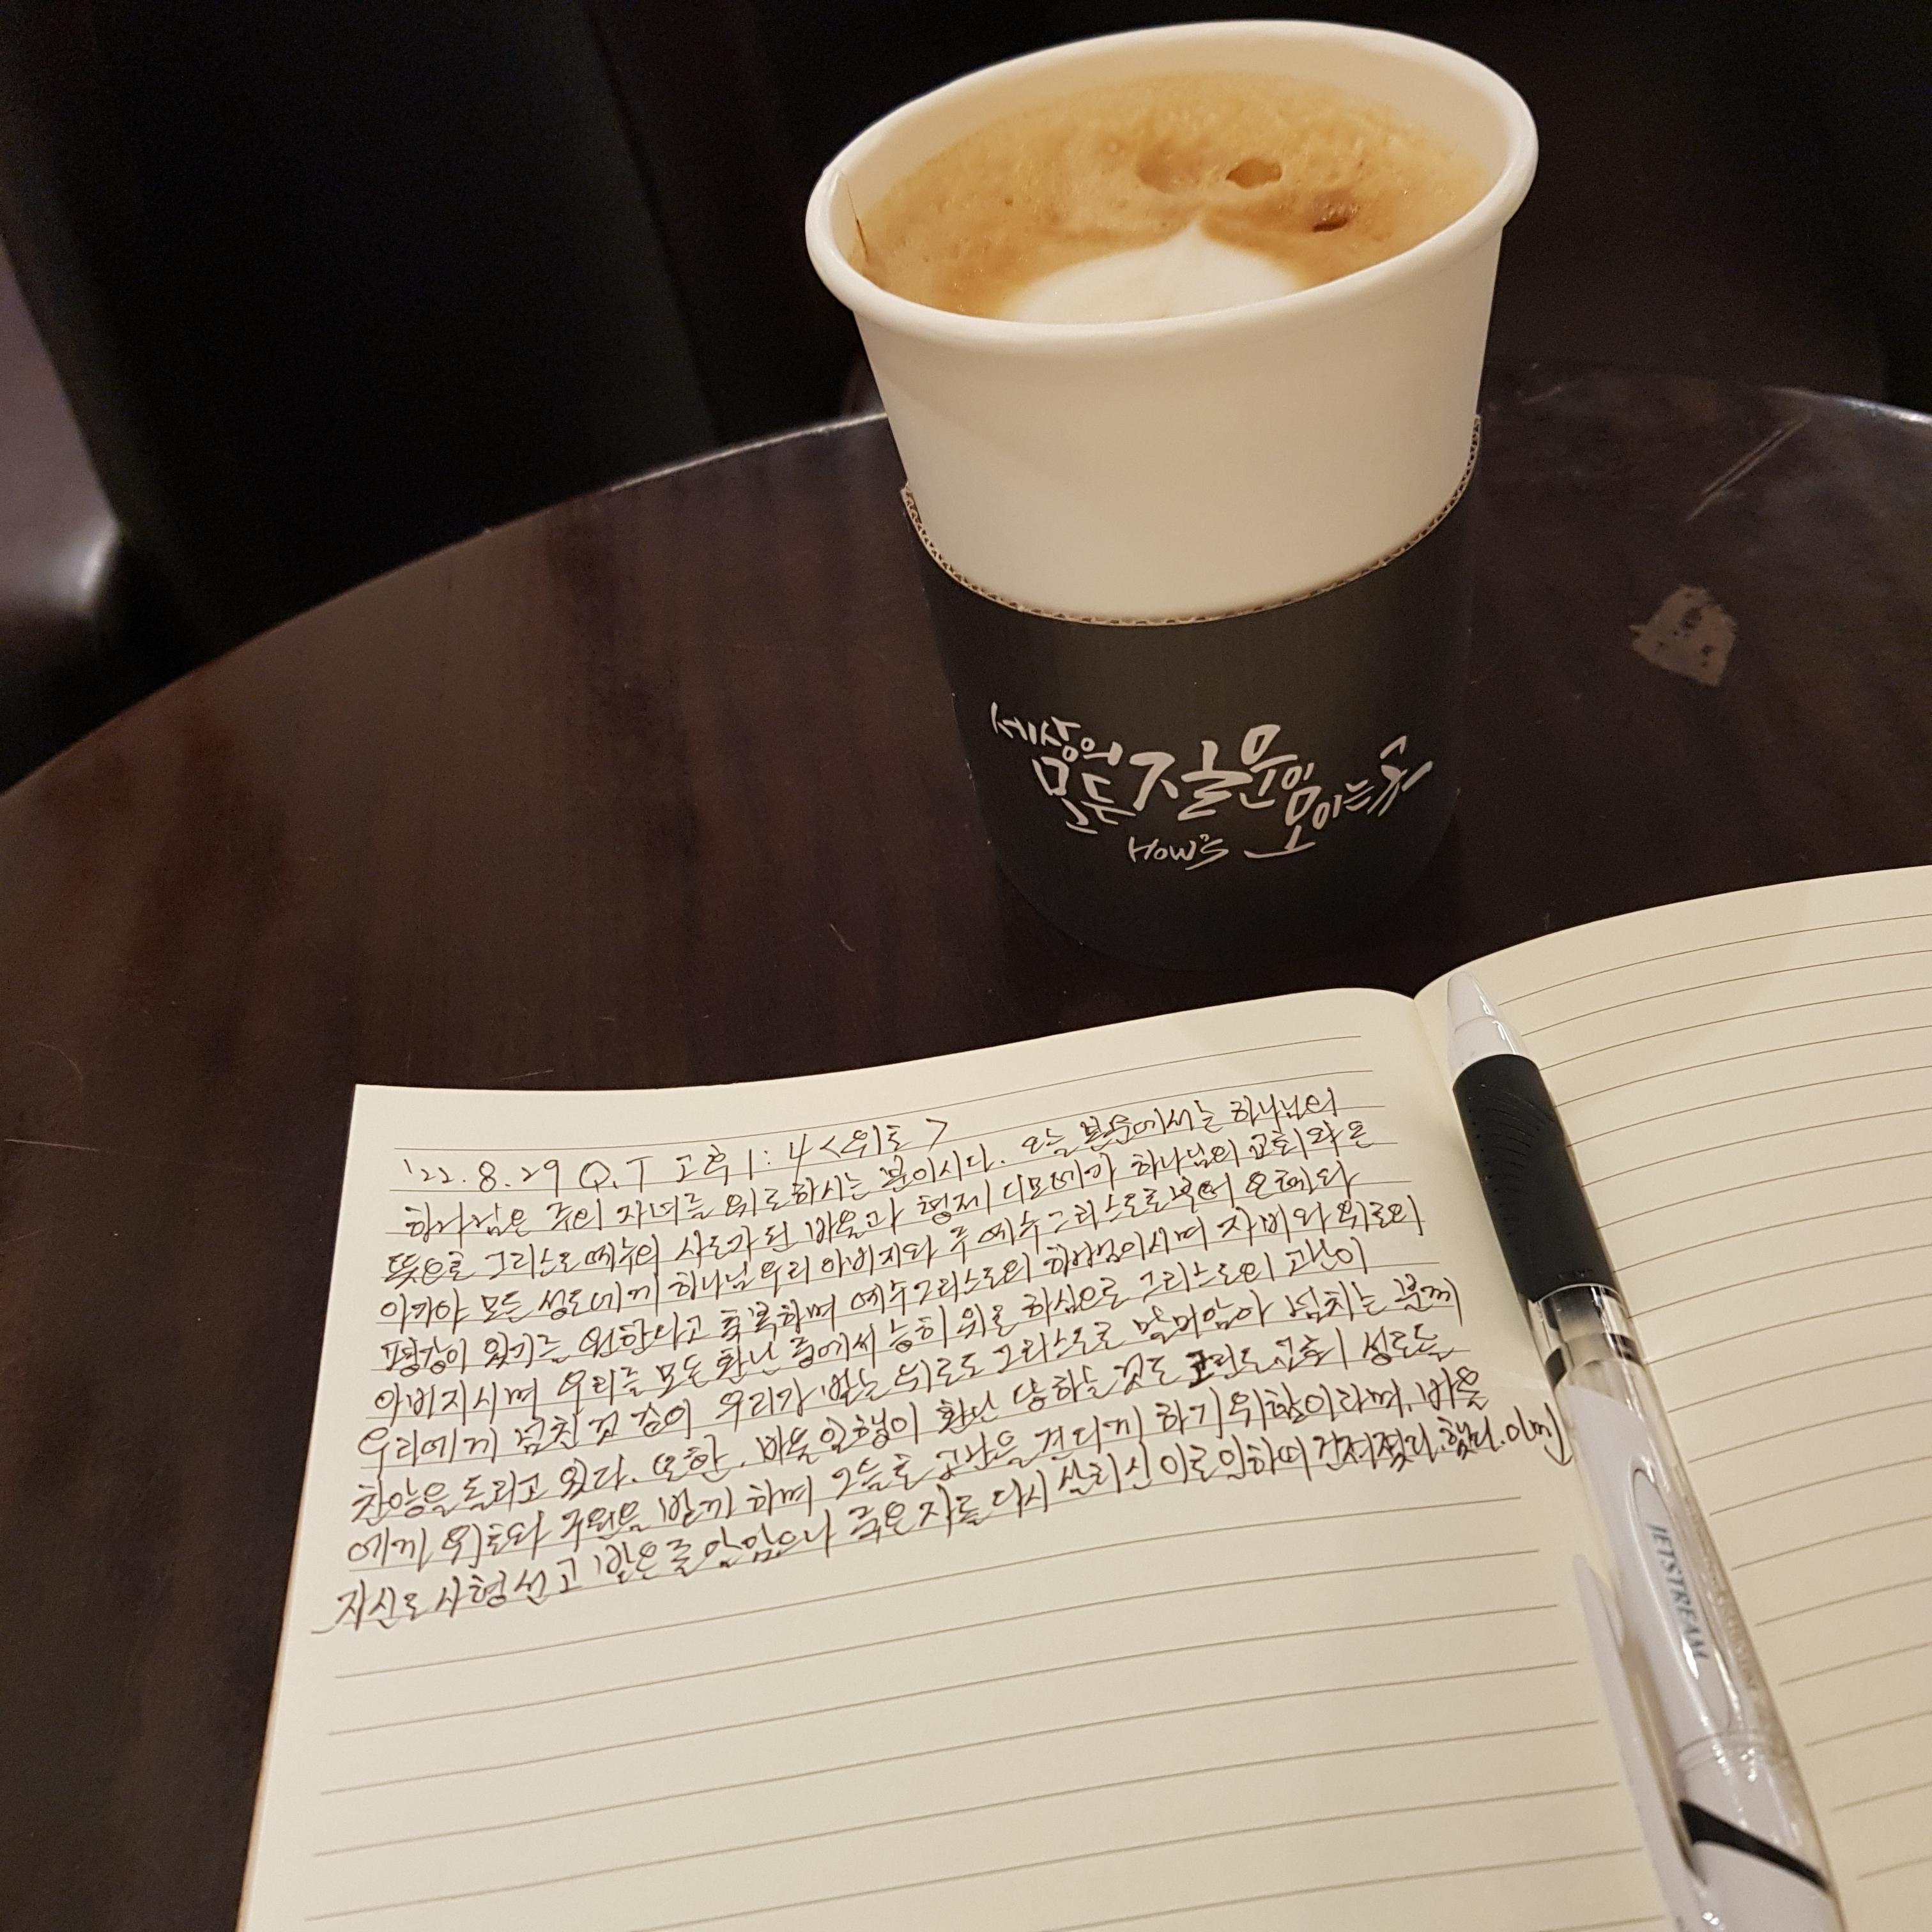 세상의
모든 질문이 모이는 곳
How's
'22. 8. 29 Q.T 고후 1 : 4 <위로>
하나님은 주의 자녀를 위로하시는 분이시다. 오늘 본문에서는 하나님의
뜻으로 그리스도 예수의 사도가 된 바울과 형제 디모데가 하나님의 교회와 온
아가야 모든 성도에게 하나님 우리 아버지와 주 예수그리스도로부터 은혜와
평강이 있기를 원한다고 축복하며 예수그리스도의 하나님이시며 자비와 위로의
아버지시며 우리를 모든 환난 중에서 능히 위로 하심으로 그리스도의 고난이
우리에게 넘친 것 같이 우리가 받는 위로도 그리스도로 말미암아 넘치는 분께
찬양을 드리고 있다. 또한, 바울 일행이 환난 당하는 것도 고린도 교회 성도들
에게 위로와 구원을 받게 하며 그들로 고난을 견디게 하기 위함이라며, 바울
자신도 사형 선고 받은 줄 알았으나 죽은 자를 다시 살리신 이로 인하여 건져졌다. 했다.
JETSTREAM